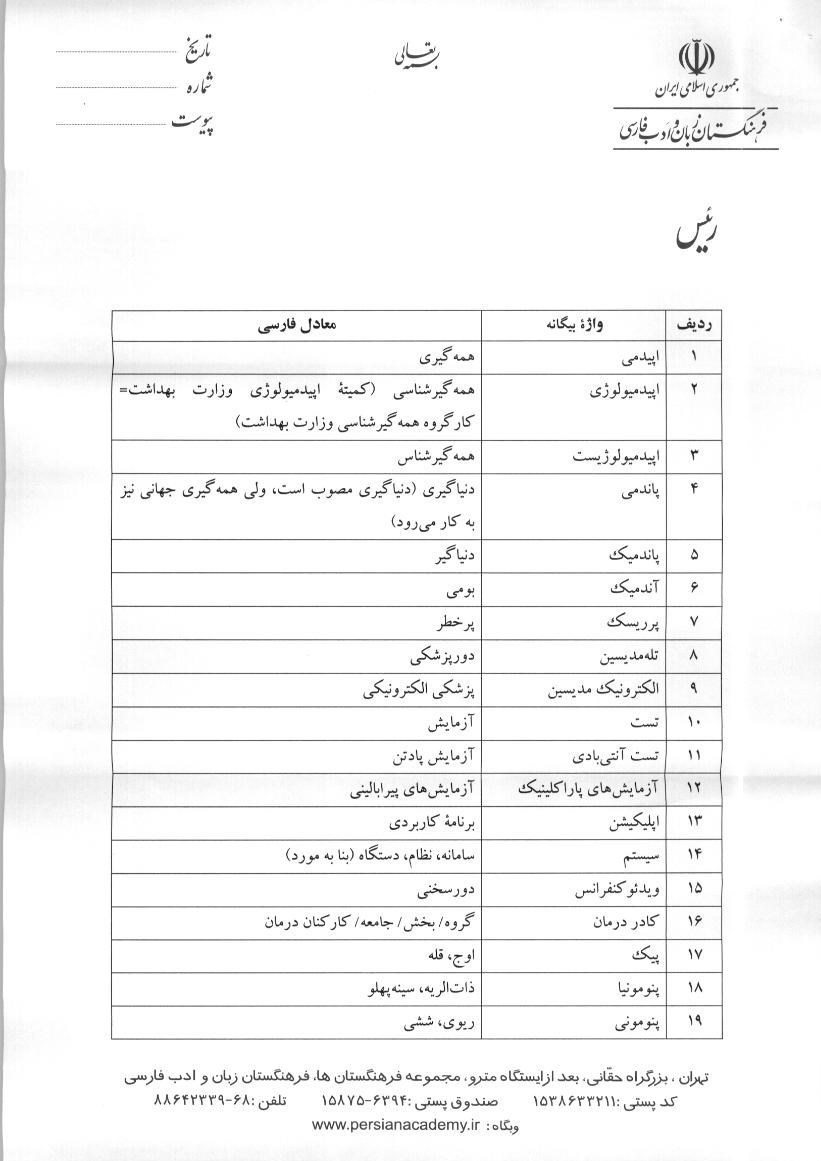 بسمه تعالی
جمهوری اسلامی ایران
فرهنگستان زبان و ادب فارسی
تاریخ
شماره
پیوست
رئیس
ردیف واژهٔ بیگانه معادل فارسی
۱ اپیدمی همه‌گیری
۲ اپیدمیولوژی همه‌گیرشناسی (کمیتهٔ اپیدمیولوژی وزارت بهداشت=
کارگروه همه‌گیرشناسی وزارت بهداشت)
۳ اپیدمیولوژیست همه‌گیرشناس
۴ پاندمی دنیاگیری (دنیاگیری مصوب است، ولی همه‌گیری جهانی نیز
به کار می‌رود)
۵ پاندمیک دنیاگیر
۶ آندمیک بومی
۷ پرریسک پرخطر
۸ تله‌مدیسین دورپزشکی
۹ الکترونیک مدیسین پزشکی الکترونیکی
۱۰ تست آزمایش
۱۱ تست آنتی‌بادی آزمایش پادتن
۱۲ آزمایش‌های پاراکلینیک آزمایش‌های پیرابالینی
۱۳ اپلیکیشن برنامهٔ کاربردی
۱۴ سیستم سامانه، نظام، دستگاه (بنا به مورد)
۱۵ ویدئوکنفرانس دورسخنی
۱۶ کادر درمان گروه/ بخش/ جامعه/ کارکنان درمان
۱۷ پیک اوج، قله
۱۸ پنومونیا ذات‌الریه، سینه‌پهلو
۱۹ پنومونی ریوی، ششی
تهران ، بزرگراه حقّانی، بعد ازایستگاه مترو، مجموعه فرهنگستان ها، فرهنگستان زبان و ادب فارسی
کد پستی :۱۵۳۸۶۳۳۲۱۱ صندوق پستی :۶۳۹۴-۱۵۸۷۵ تلفن :۶۸-۸۸۶۴۲۳۳۹
وبگاه : www.persianacademy.ir